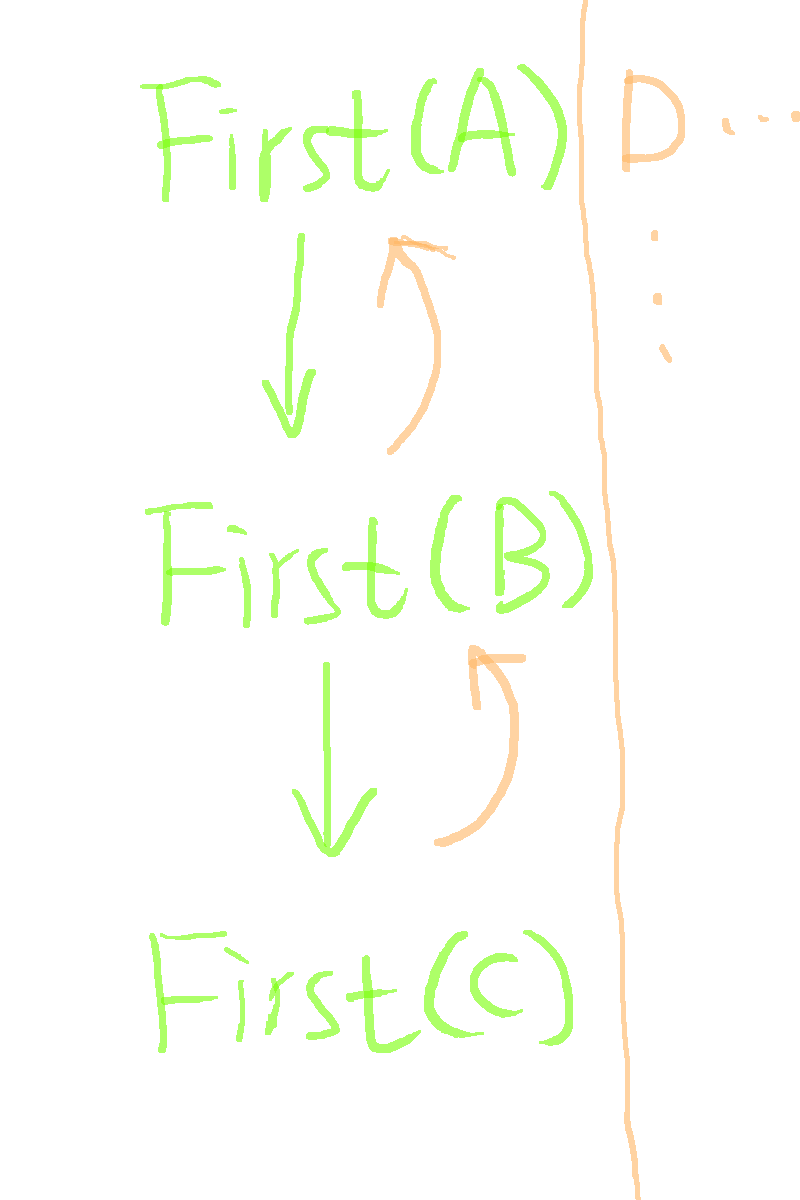 First(A) D ...
First(B)
First(C)